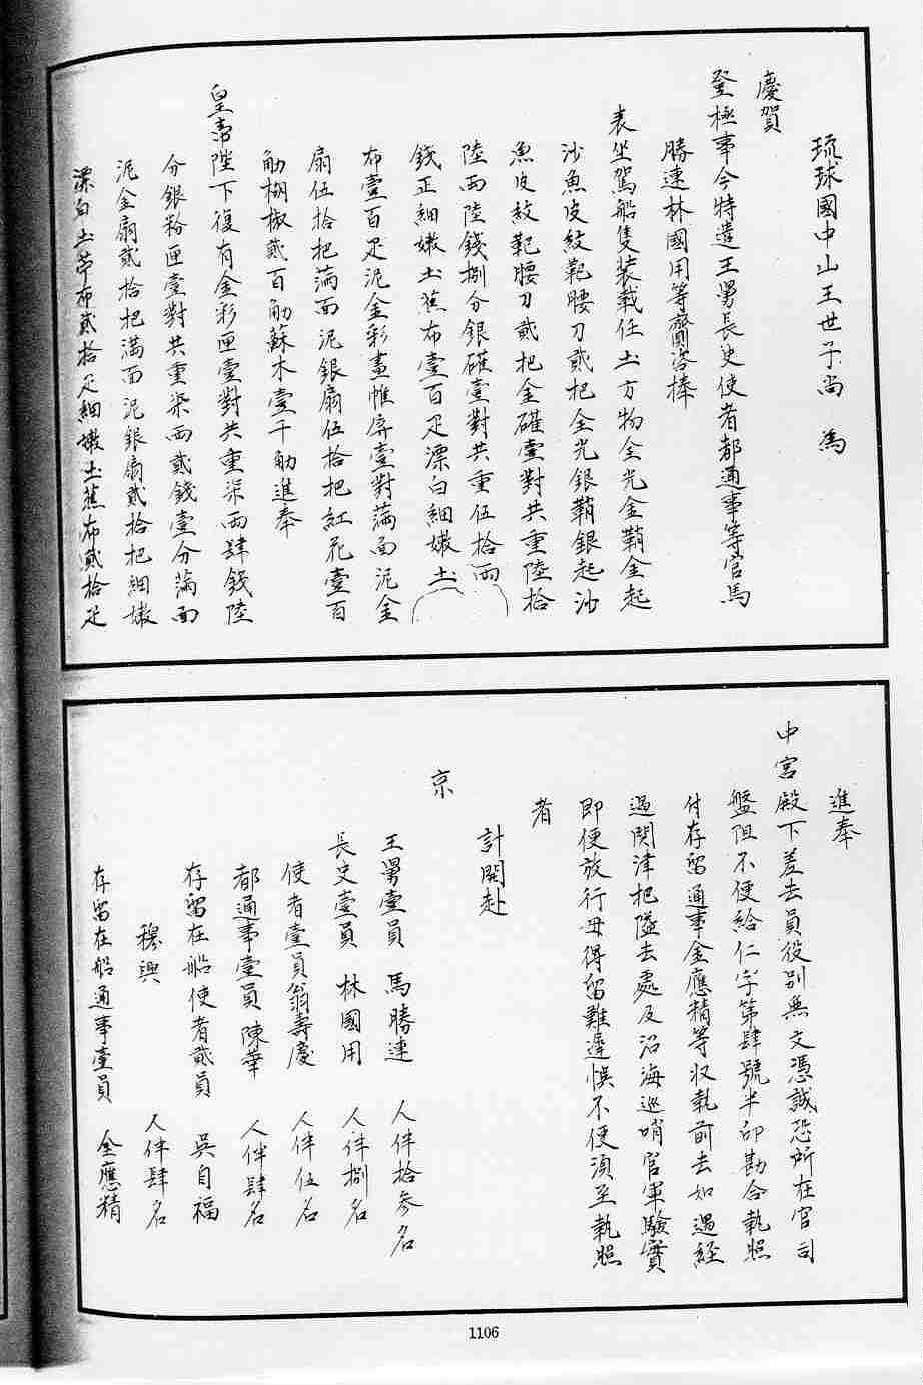 琉球國中山王世子尚　為
慶賀
登極事今特遣王舅長史使者都通事等官馬
勝連林國用等齎咨捧
表坐駕船隻裝載任土方物金光金鞘金起
沙魚皮紋靶腰刀貳把金光銀鞘銀起沙
魚皮紋靶腰刀貳把金礶壹對共重陸拾
陸兩陸錢捌分銀礶壹對共重伍拾兩
錢正細嫩土蕉布壹百疋漂白細嫩土
布壹百疋泥金彩畫帷屏壹對滿面泥金
扇伍拾把滿面泥銀扇伍拾把紅花壹百
觔胡椒貳百觔蘇木壹千觔進奉
皇帝陛下復有金彩匣壹對共重柒兩肆錢陸
分銀粉匣壹對共重柒兩貳錢壹分滿面
泥金扇貳拾把滿面泥銀扇貳拾把細嫩
漂白土苧布貳拾疋細嫩土蕉布貳拾疋
進奉
中宮殿下差去員役別無文憑誠恐所在官司
盤阻不便給仁字第肆號半印勘合執照
付存留通事金應精等收執前去如遇經
過関津把隘去處及沿海巡哨官軍驗實
即便放行毋得留難遲悞不便須至執照
者
計開赴
京
王舅壹員　馬勝連　人伴拾參名
長史壹員　林國用　人伴捌名
使者壹員翁壽慶　人伴伍名
都通事壹員陳華　人伴肆名
存留在船使者貳員　吳自福
穆興　人伴肆名
存留在船通事壹員　金應精
1106